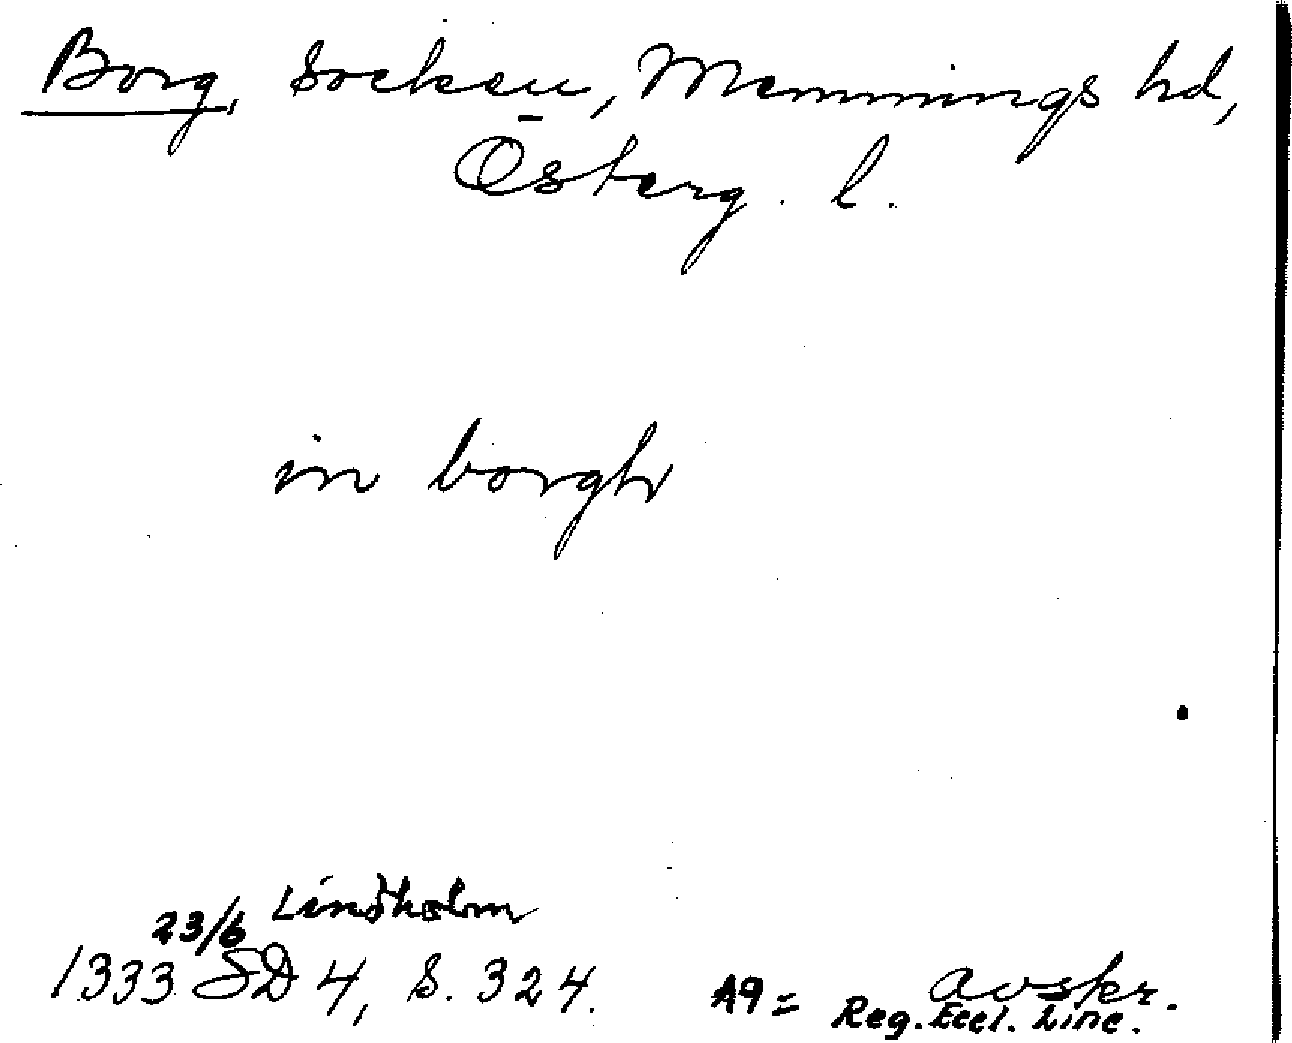 Borg, socken, Memmings hd,
Österg. l.
in borgh
23/6 Lindholm
1333 SD 4, s. 324.
avskr.
A9 = Reg. Eccl. Linc.